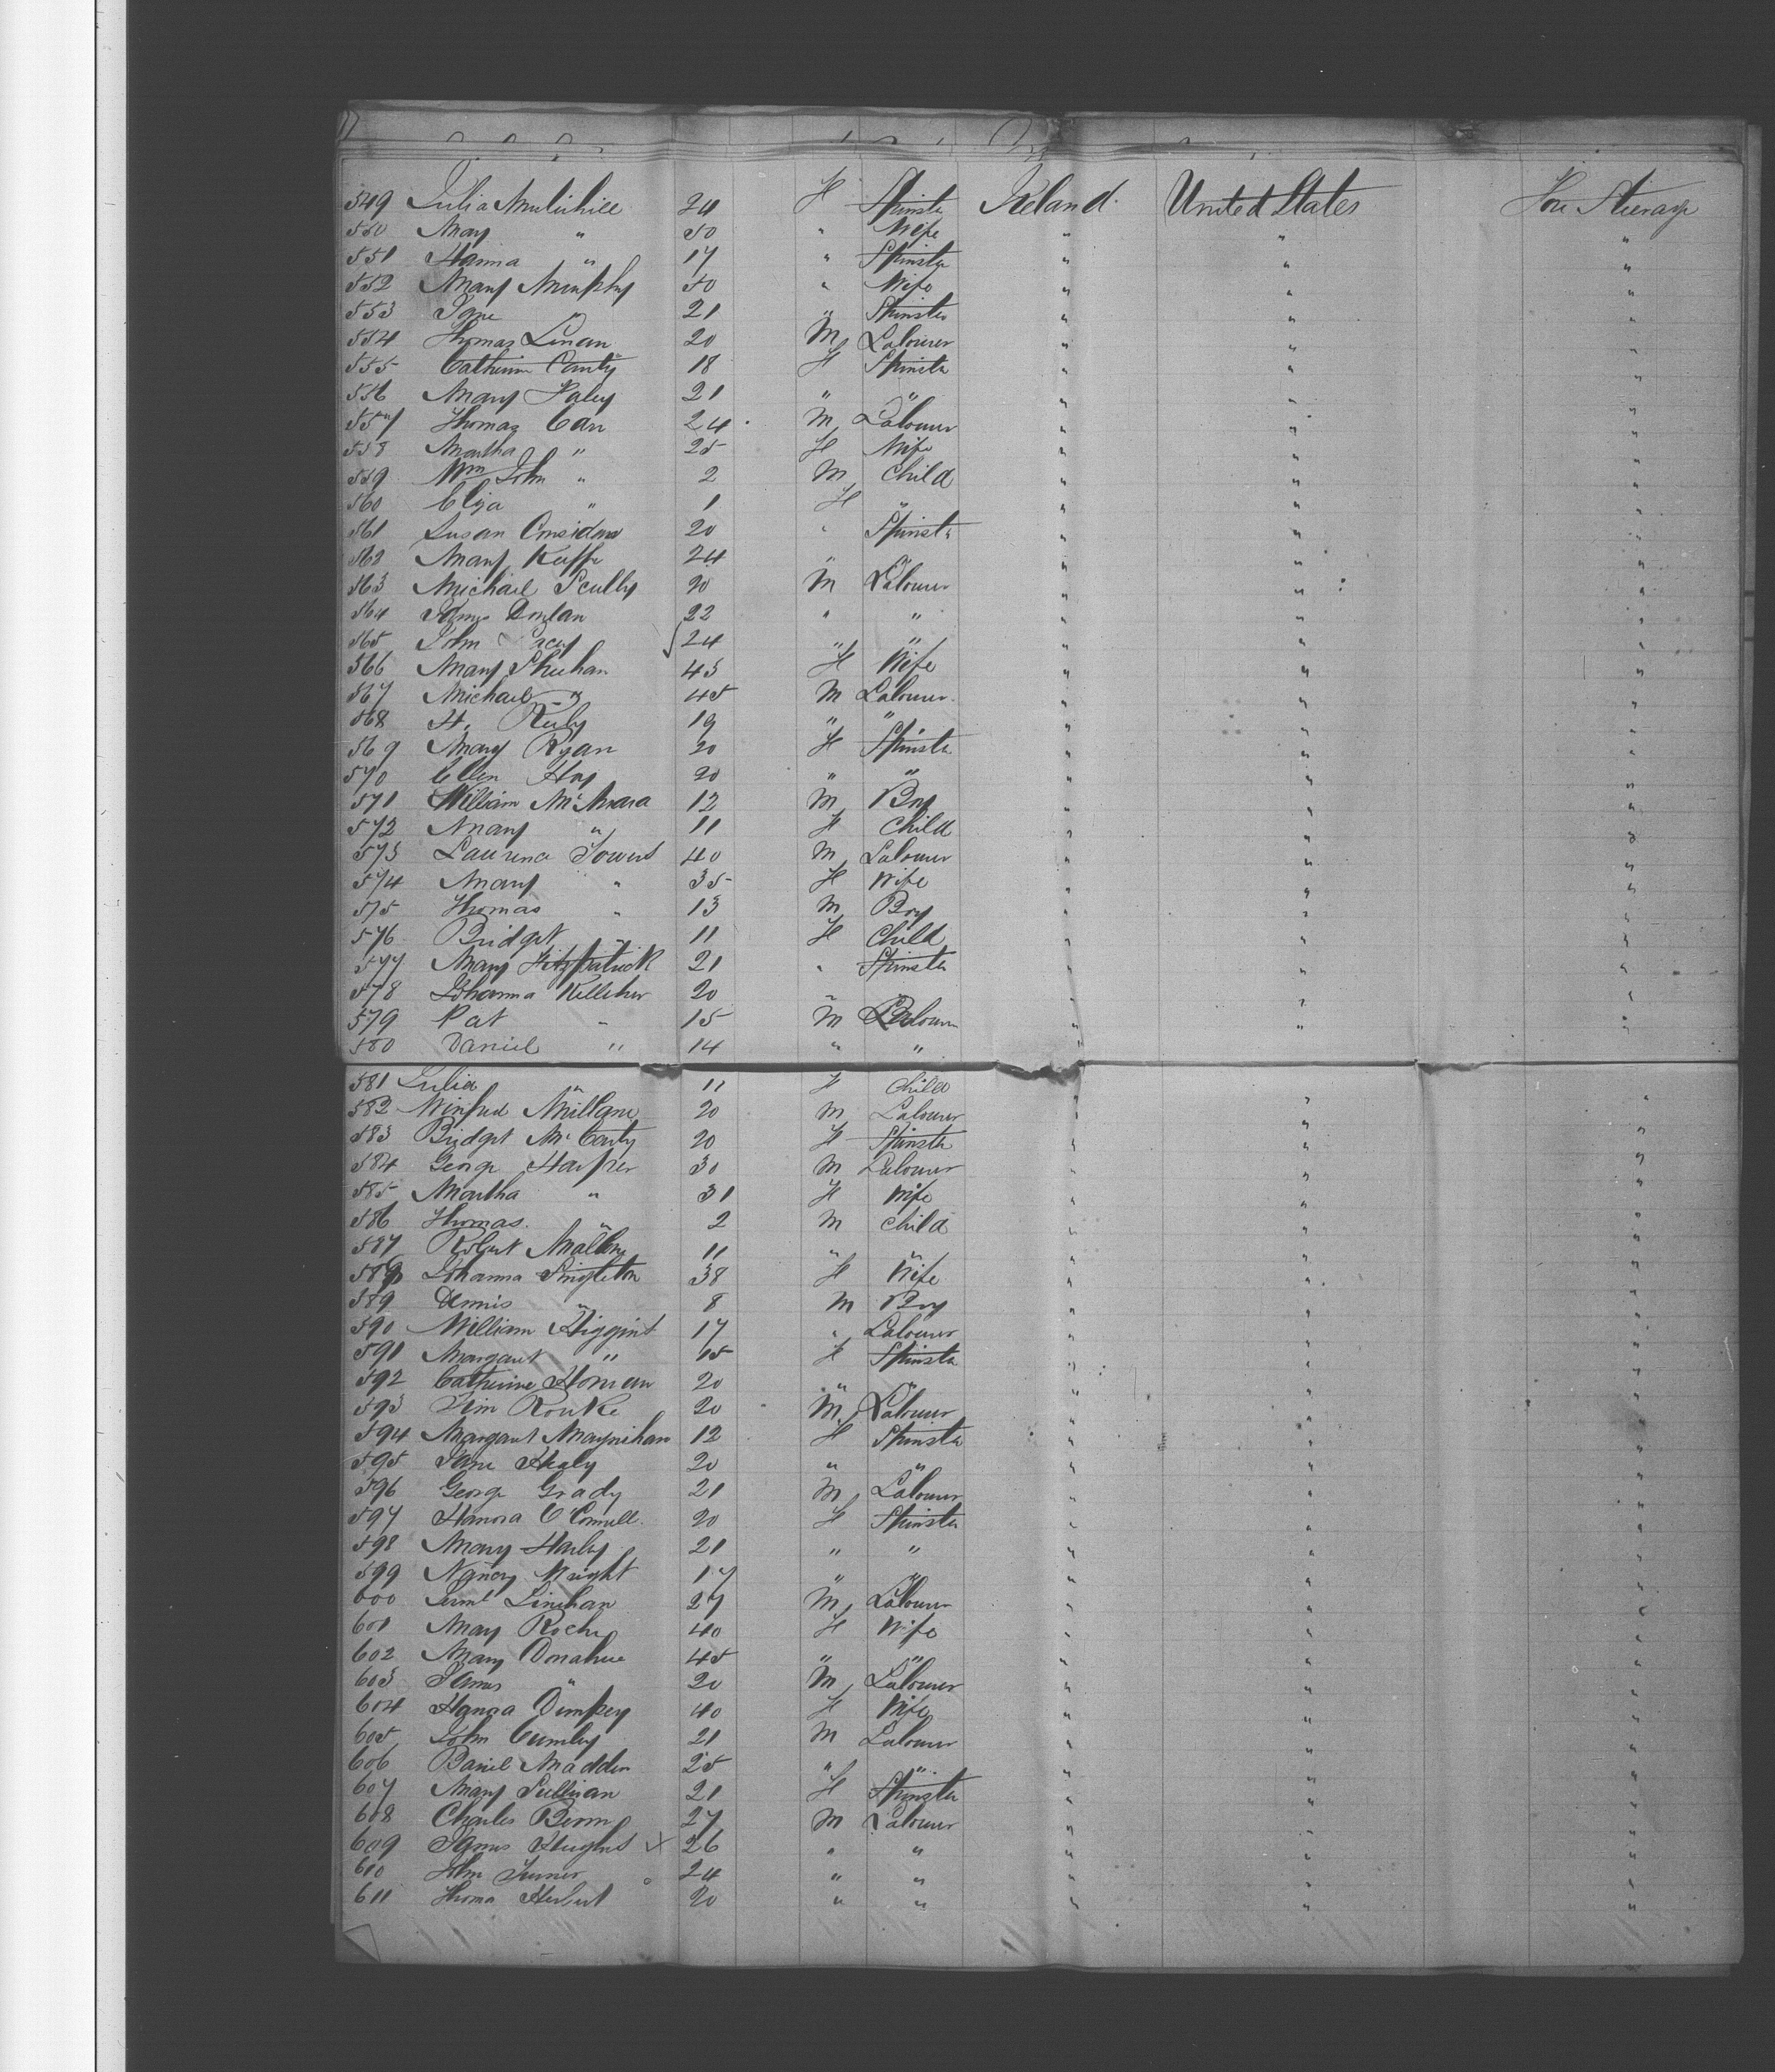 549 Julia Mulvihill 24 F Spinster Ireland United States Fore Steerage
550 Mary " 50 " Wife " " "
551 Hanna " 17 " Spinster " " "
552 Mary Murphy 50 " Wife " " "
553 Jane " 21 " Spinster " " "
554 Thomas Linan 20 M Labourer " " "
555 Catherine Canty 18 F Spinster " " "
556 Mary Haley 21 " " " " "
557 Thomas Carr 24 M Labourer " " "
558 Martha " 25 F Wife " " "
559 Wm John " 2 M Child " " "
560 Eliza " 1 F " " " "
561 Susan Considine 20 " Spinster " " "
562 Mary Keffe 24 " " " " "
563 Michael Scully 20 M Labourer " " "
564 James Donlan 22 " " " " "
565 John Lacey 24 " " " " "
566 Mary Sheehan 43 F Wife " " "
567 Michael " 45 M Labourer " " "
568 H. 19 " " " " "
569 Mary Ryan 20 F Spinster " " "
570 Ellen Hay 20 " " " " "
571 William McMara 12 M Boy " " "
572 Mary " 11 F Child " " "
573 Laurence Towers 40 M Labourer " " "
574 Mary " 35 F Wife " " "
575 Thomas " 13 M Boy " " "
576 Bridget " 11 F Child " " "
577 Mary Fitzpatrick 21 " Spinster " " "
578 Johanna Kelleher 20 " " " " "
579 Pat " 15 M Labourer " " "
580 Daniel " 14 " " "
581 Julia " 11 F Child " " "
582 Winfred Mullane 20 M Labourer " " "
583 Bridget McCarty 20 F Spinster " " "
584 George Harper 30 M Labourer " " "
585 Martha " 31 F Wife " " "
586 Thomas " 2 M Child " " "
587 Robert 11 " " " " "
588 Johanna Singleton 38 F Wife " " "
589 Dennis " 8 M Boy " " "
590 William Higgins 17 " Labourer " " "
591 Margaret " 15 F Spinster " " "
592 Catherine 20 " " " " "
593 Tim Rourke 20 M Labourer " " "
594 Margaret Maynihan 12 F Spinster " " "
595 Jane Healy 20 " " " " "
596 George Grady 21 M Labourer " " "
597 Hanora O'Connell 20 F Spinster " " "
598 Mary Harley 21 " " " " "
599 Nancy Wright 17 " " " " "
600 Linehan 27 M Labourer " " "
601 Mary Roche 40 F Wife " " "
602 Mary Donahue 45 " " " " "
603 James " 20 M Labourer " " "
604 Hanora Dempsey 40 F Wife " " "
605 John 21 M Labourer " " "
606 Daniel Madden 25 " " " " "
607 Mary Sullivan 21 F Spinster " " "
608 Charles 27 M Labourer " " "
609 James Hughes x 26 " " " " "
610 John Turner 24 " " " " "
611 Thomas Herbert 20 " " " " "